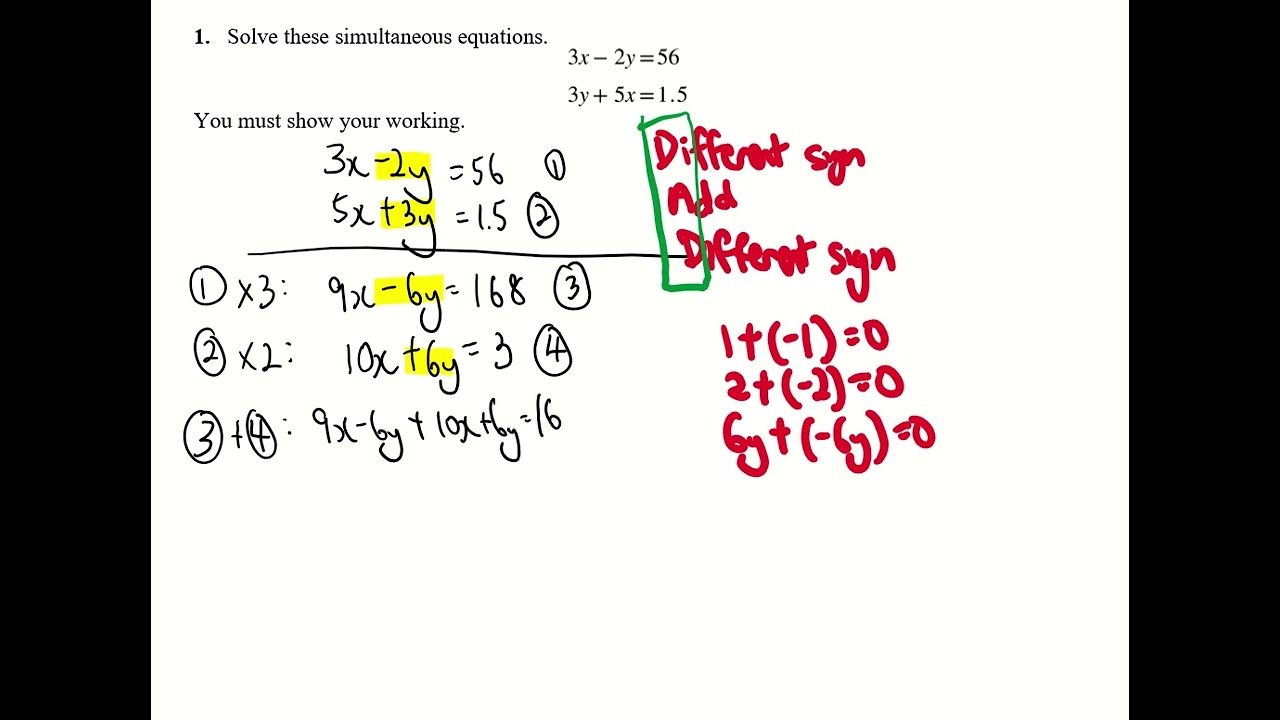 1. Solve these simultaneous equations.
3x − 2y = 56
3y + 5x = 1.5
You must show your working.
3x − 2y = 56 ①
5x + 3y = 1.5 ②
Different sign
Add
Different sign
① × 3: 9x − 6y = 168 ③
② × 2: 10x + 6y = 3 ④
③ + ④: 9x − 6y + 10x + 6y = 16
1 + (−1) = 0
2 + (−2) = 0
6y + (−6y) = 0